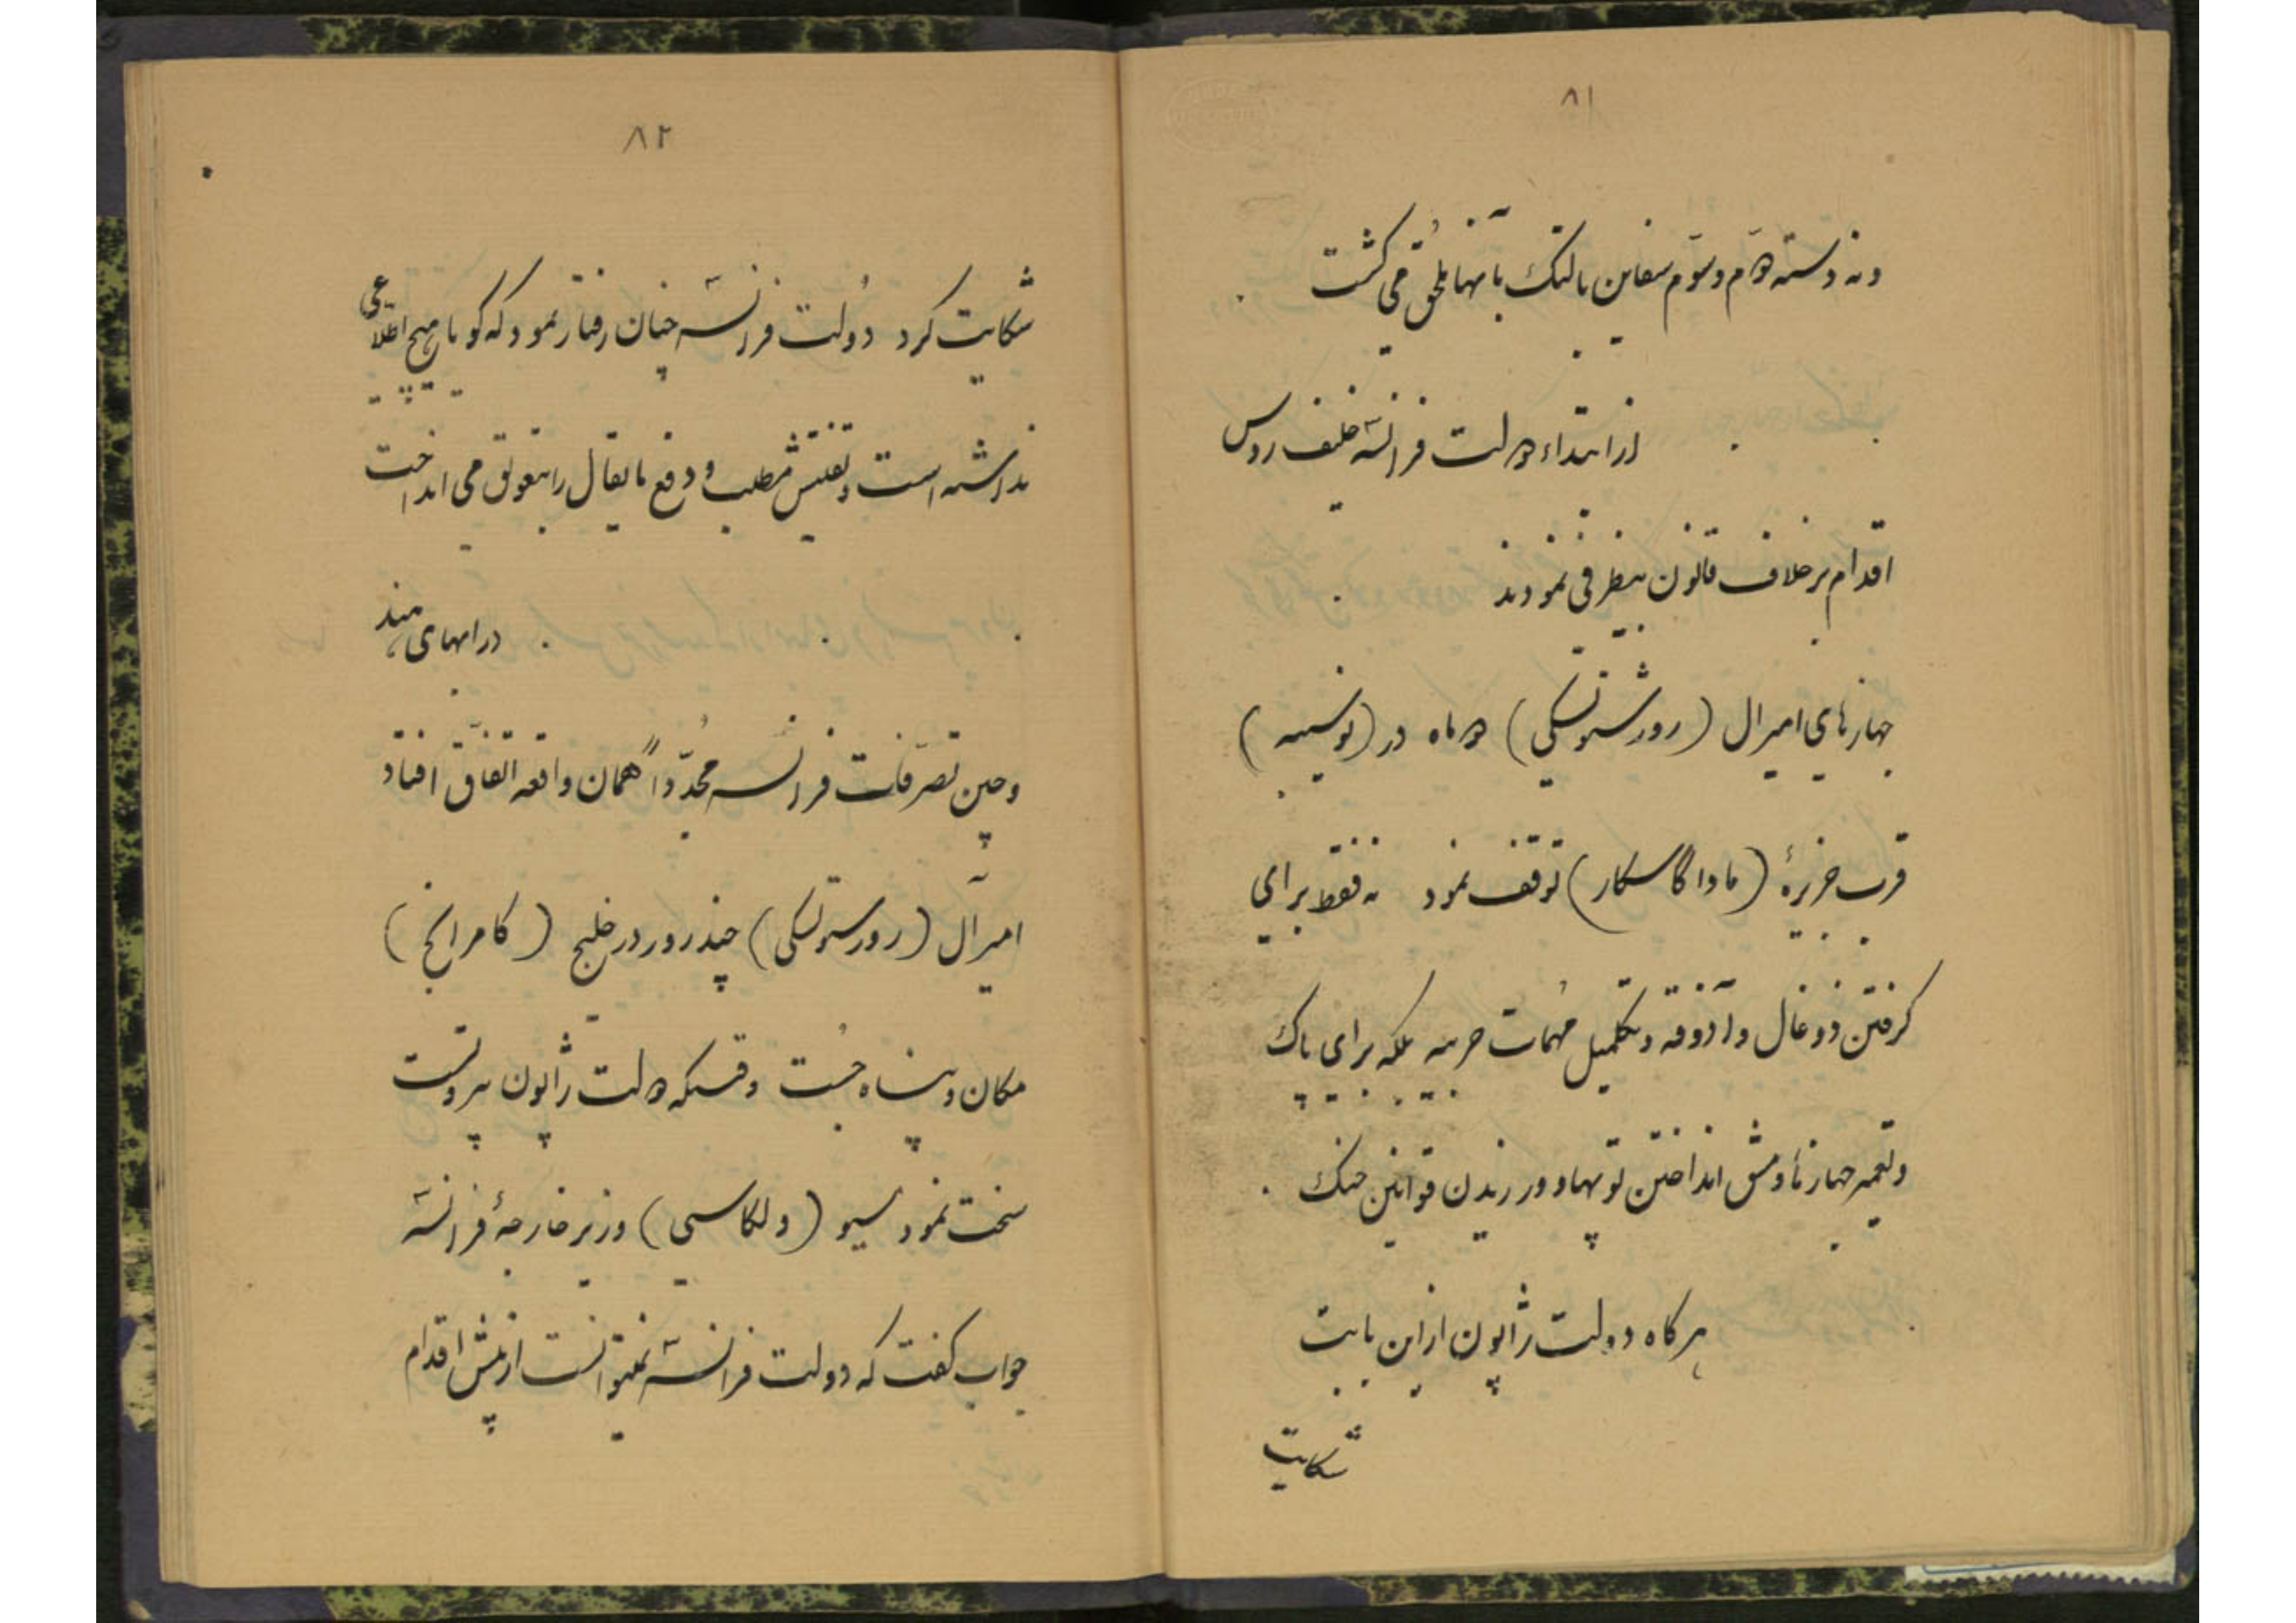 ۸۱
ونه دسته دوّم وسوّم سفاین بالتیک بآنها مُلحق می گشت
از ابتداء دولت فرانسهٔ حلیف روس
اقدام برخلاف قانون بیطرفی نمودند
جهازهای امیرال (روژستونسکی) دو ماه در (نوسیبه)
قرب جزیرهٔ (ماداگاسکار) توقف نمود نه فقط برای
گرفتن ذوغال وآذوقه وتکمیل مُهمات حربیه بلکه برای پاک
وتعمیر جهازها ومشق انداختن توپها و ورزیدن قوانین جنک .
هرگاه دولت ژاپون از این بابت
شکایت
۸۲
شکایت کرد دُولت فرانسه چنان رفتار نمود که گویا هیچ اطّلاعی
نداشته است وتفتیش مطلب ودفع مایقال را بتعویق می انداخت
در ابهای هند
وچین تصرّفات فرانسه مُجدّداً همان واقعه اتفّاق افتاد
امیرآل (روژستونسکی) چند روز در خلیج (کامرانج)
مکان وپناه جُست وقتیکه دولت ژاپون پروتست
سخت نمود مسیو (دلکاسی) وزیر خارجهٔ فرانسه
جواب گفت که دولت فرانسه نمیتوانست از پیش اقدام